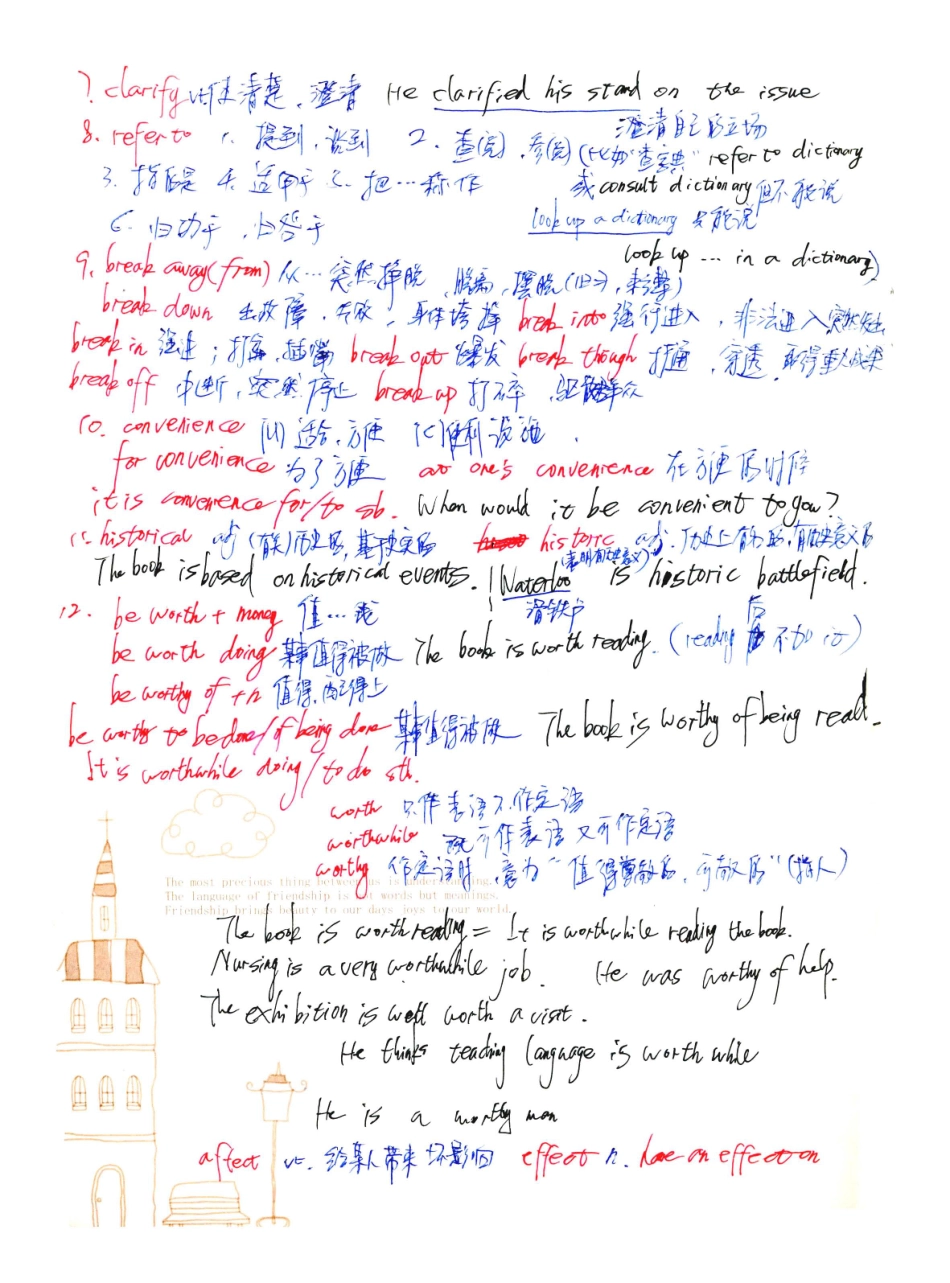 7. clarify vt.使清楚，澄清 He clarified his stand on the issue
澄清自己的立场
8. refer to 1. 提到，谈到 2. 查(阅)，参(阅) (比如"查字典" refer to dictionary
3. 指的是 4. 适用于 5. 把…称作 或 consult dictionary 但不能说
6. 归功于，归咎于 look up a dictionary 只能说
look up … in a dictionary)
9. break away (from) 从…突然挣脱，脱离，摆脱(旧习，束缚)
break down 出故障，失败，身体垮掉 break into 强行进入，非法进入 突然发出
break in 强进；打断，插嘴 break out 爆发 break though 打通，穿透，取得重大成果
break off 中断，突然停止 break up 打碎，驱散群众
10. convenience [U] 适合，方便 [C]便利设施．
for convenience 为了方便 at one's convenience 在方便的时候
it is convenience for/to sb. When would it be convenient to you?
11. historical adj (有关)历史的，基于史实的 historic adj. 历史上有名的，有历史意义的
(表明有历史意义)
The book is based on historical events. | Waterloo is historic battlefield.
滑铁卢
12. be worth + money 值…钱
be worth doing 某事值得被做 The book is worth reading. (reading 后不加 it)
be worthy of + n 值得，配得上
be worthy to be done/of being done 某事值得被做 The book is worthy of being read.
It is worthwhile doing/to do sth.
worth 只作表语不作定语
worthwhile 既可作表语又可作定语
worthy 作定语时，意为"值得尊敬的，可敬的"(指人)
The most precious thing between us is understanding.
The language of friendship is not words but meanings.
Friendship brings beauty to our days joys to our world.
The book is worth reading = It is worthwhile reading the book.
Nursing is a very worthwhile job. He was worthy of help.
The exhibition is well worth a visit.
He thinks teaching language is worth while
He is a worthy man
affect vt. 给某人带来坏影响 effect n. have an effect on